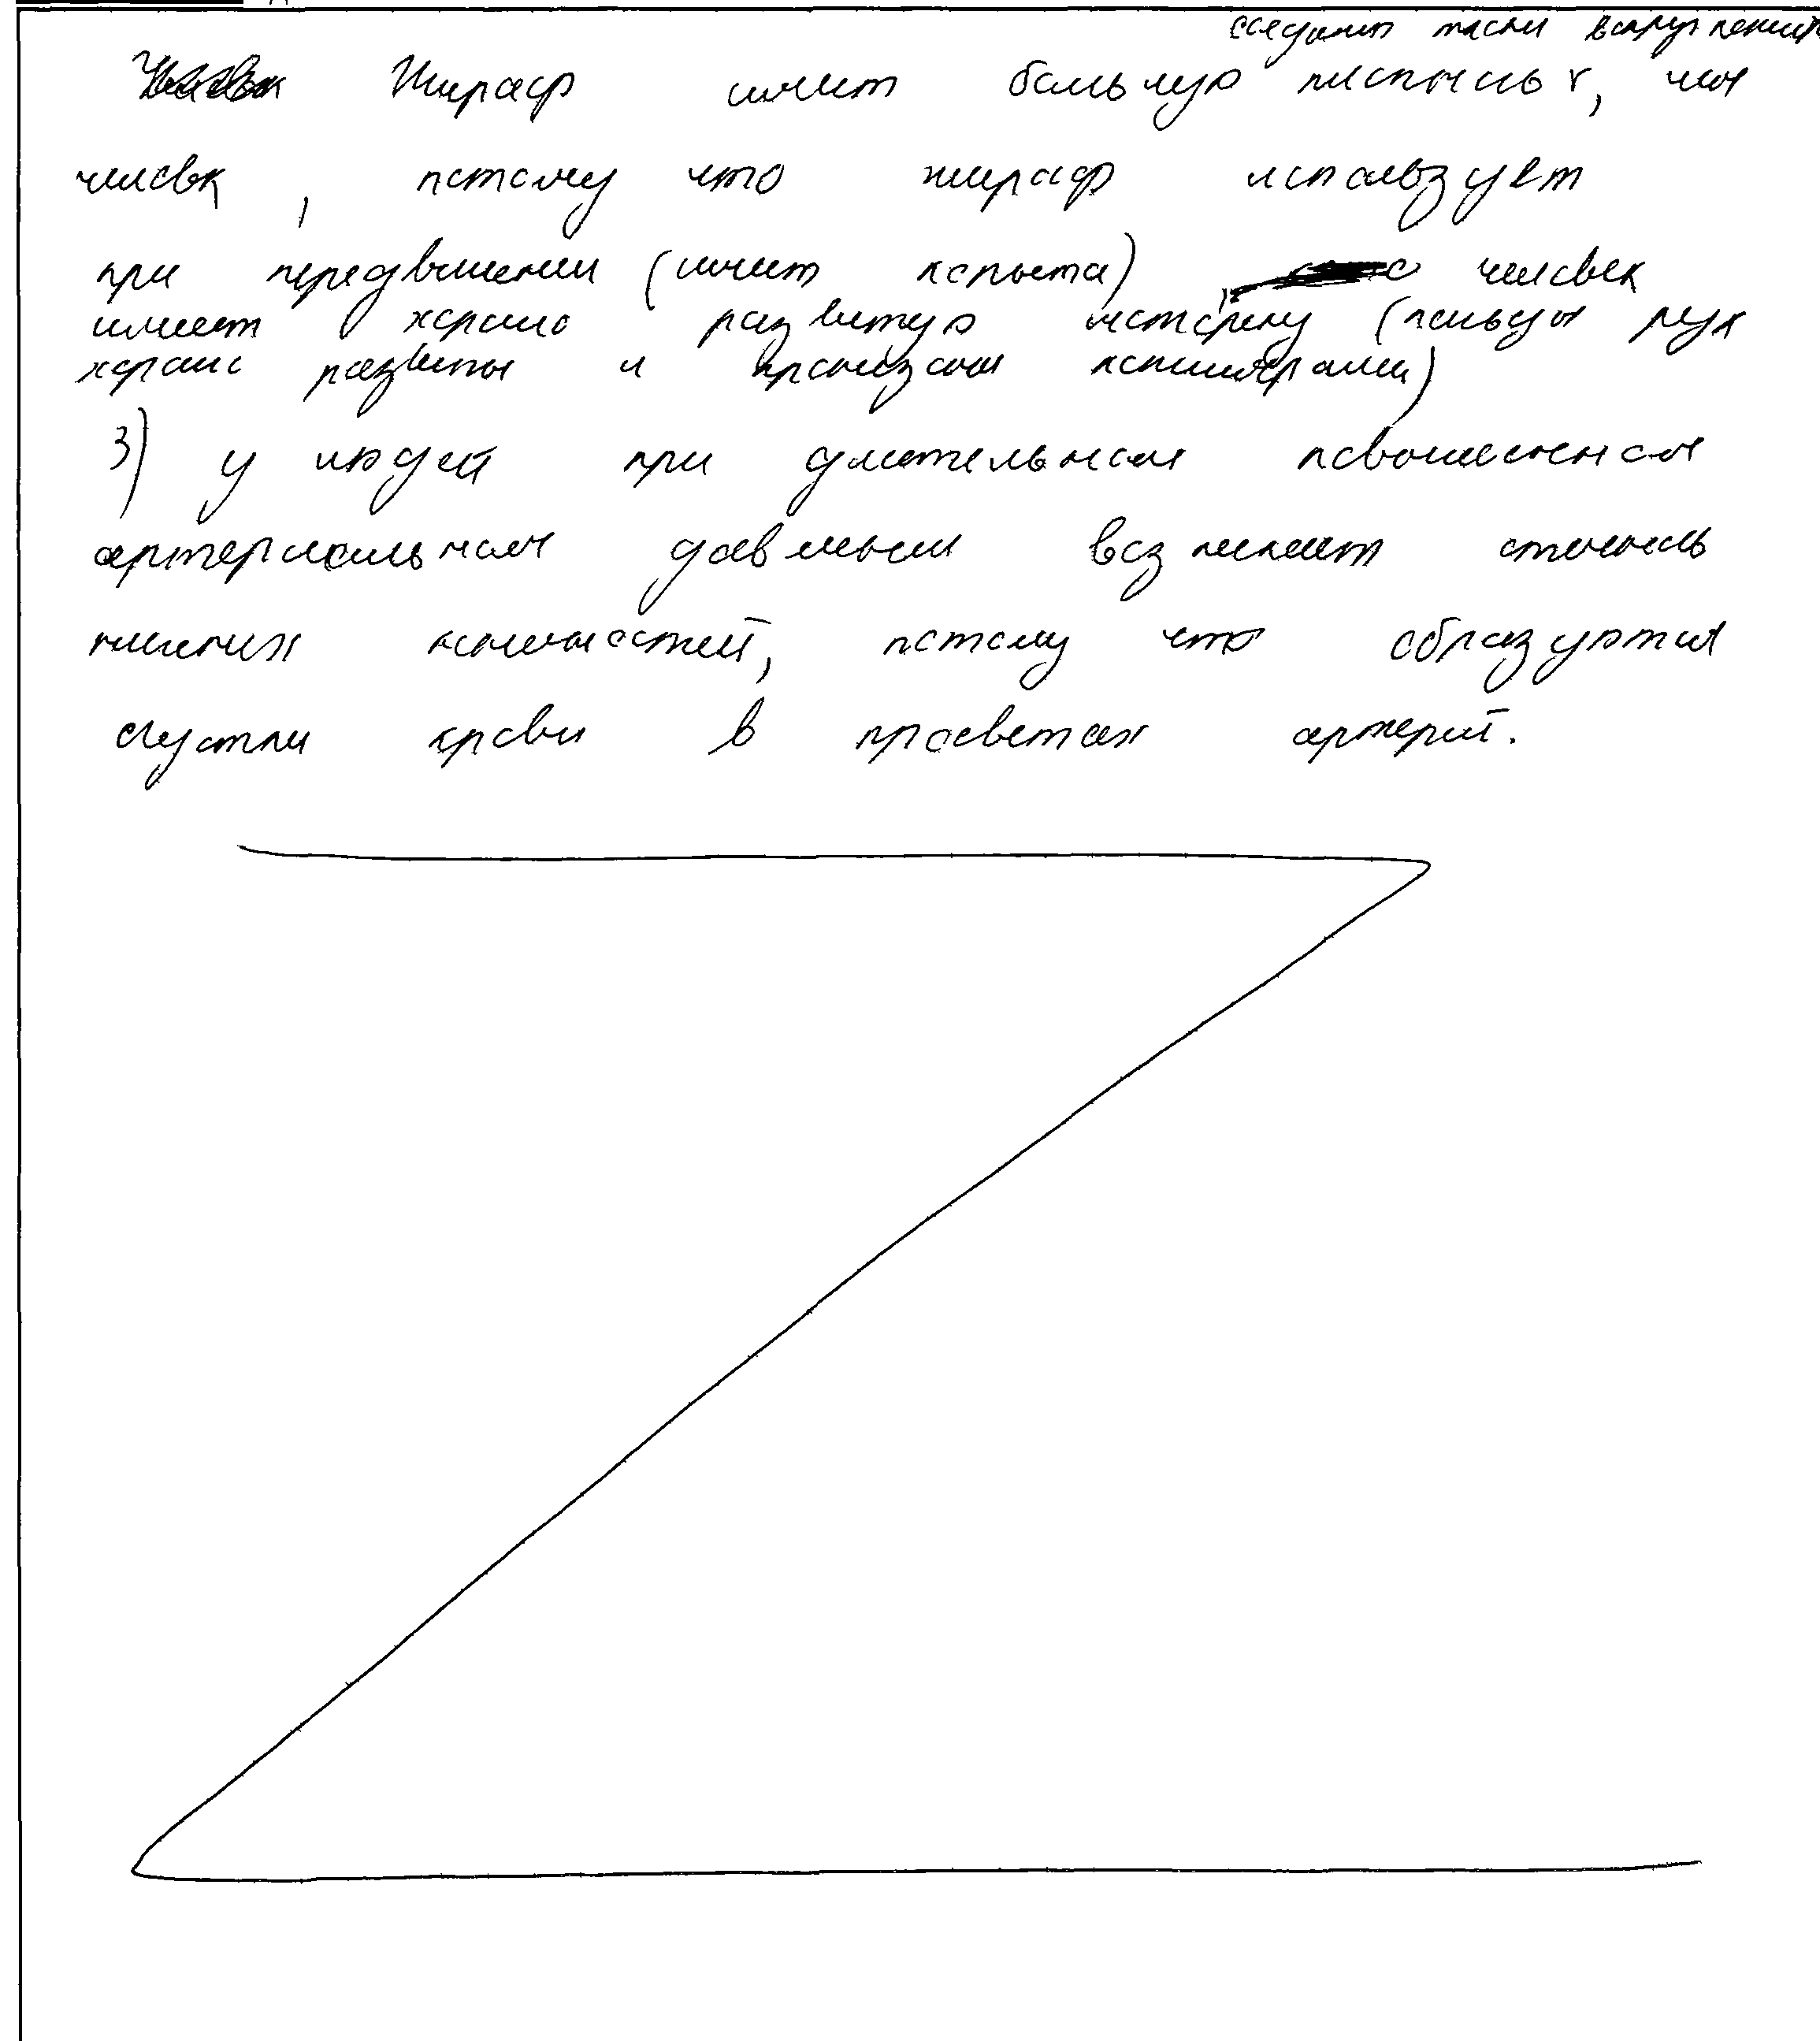 соединит ткани вокруг
Жираф имеет большую плотность, чем
человк, потому что жираф использует
при передвижении (имеет копыта), человек
имеет хорошо развитую моторику (пальцы рук
хорошо развиты и пронизаны капиллярами)
3) у людей при длительном повышенном
артериальном давлении возникает
нижних конечностей, потому что образуются
сгустки крови в просветах артерий.